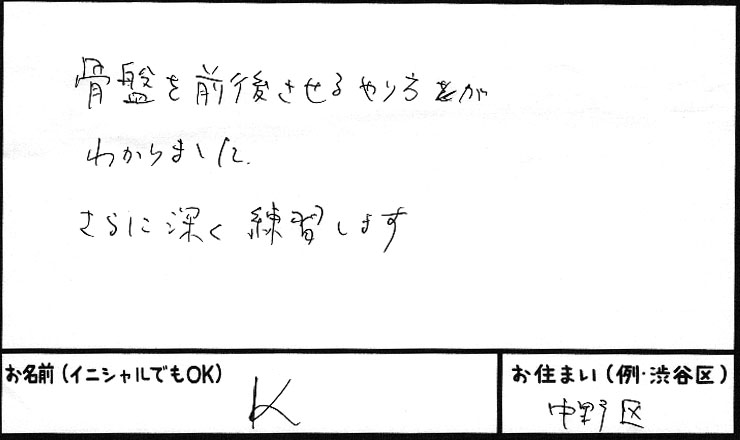 骨盤を前後させるやり方が
わかりました.
さらに深く練習します
お名前(イニシャルでもOK)
K
お住まい(例・渋谷区)
中野区